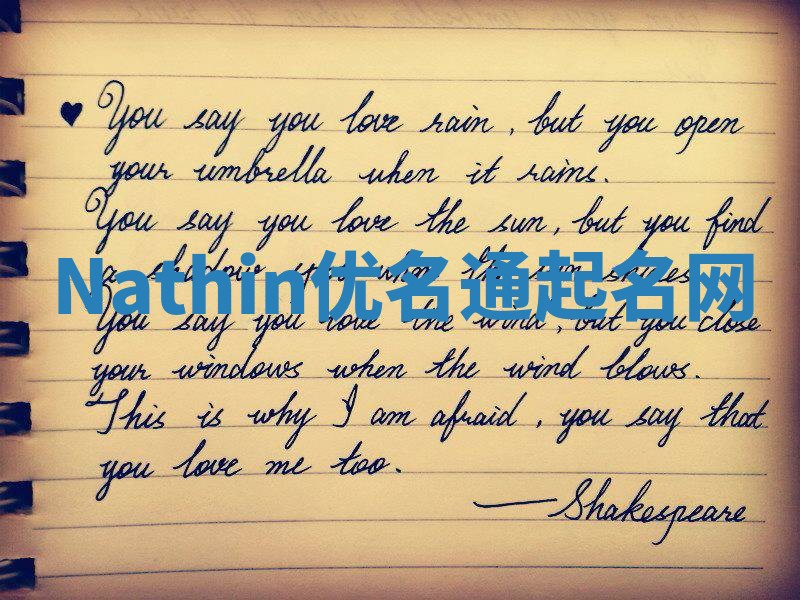 ♥ You say you love rain, but you open
your umbrella when it rains.
You say you love the sun, but you find
a shadow spot when the sun shines.
Nathin优名通起名网
You say you love the wind, but you close
your windows when the wind blows.
This is why I am afraid, you say that
you love me too.
— Shakespeare